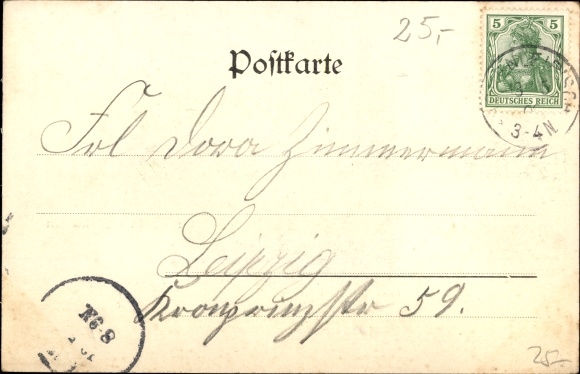 25,-
5 5
Postkarte
DEUTSCHES REICH
3-4N.
Frl Dora Zimmermann
Leipzig
Kronprinzstr 59.
8-9N
25-